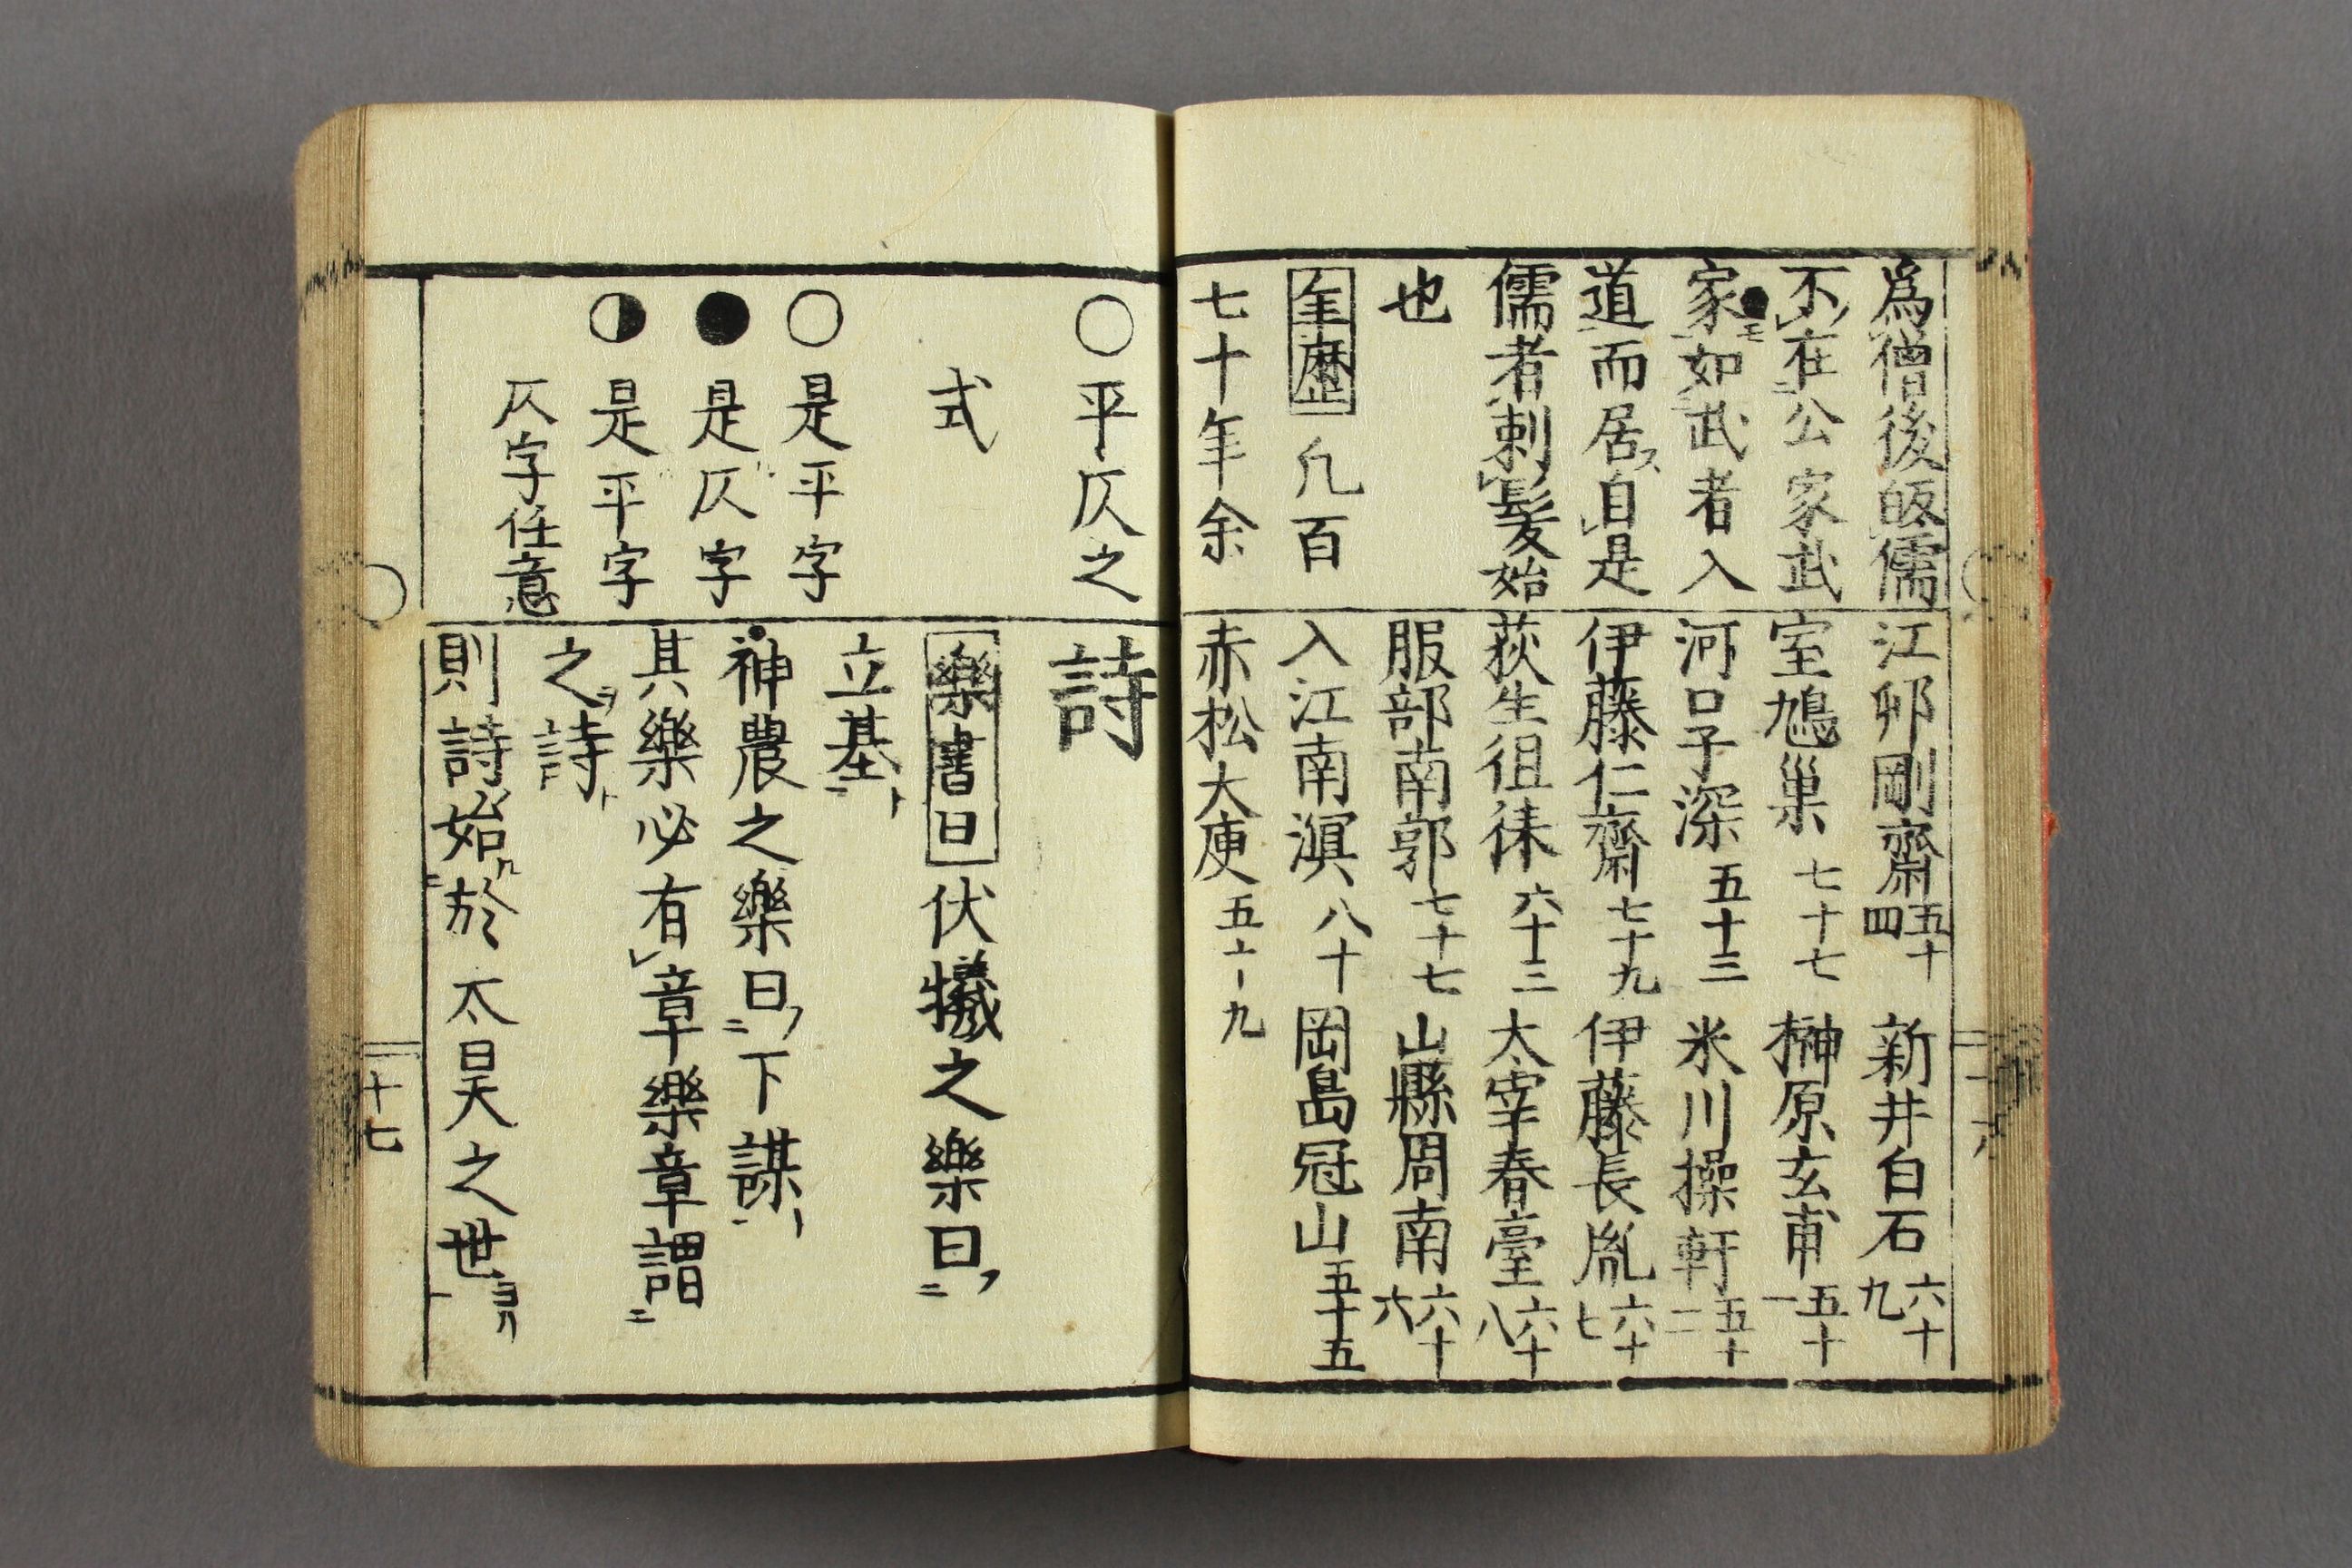 爲僧後皈儒
不在公家武
家如武者入
道而居自是
儒者剃髮始
也
年歴 凡百
七十年余
江邨剛齋五十四 新井白石六十九
室鳩巢七十七 榊原玄甫五十一
河口子深五十三 米川操軒五十二
伊藤仁齋七十九 伊藤長胤六十七
荻生徂徠六十三 太宰春臺六十八
服部南郭七十七 山縣周南六十六
入江南溟八十 岡島冠山五十五
赤松大庾五十九
○平仄之
式
○是平字
●是仄字
◑是平字
仄字任意
詩
樂書曰 伏犧之樂曰フ二
立基ト二
神農之樂曰フ二下謀ト一
其樂必有レ章樂章謂二
之ヲ詩ト
則詩始ル二於太昊之世ヨリ一
十七